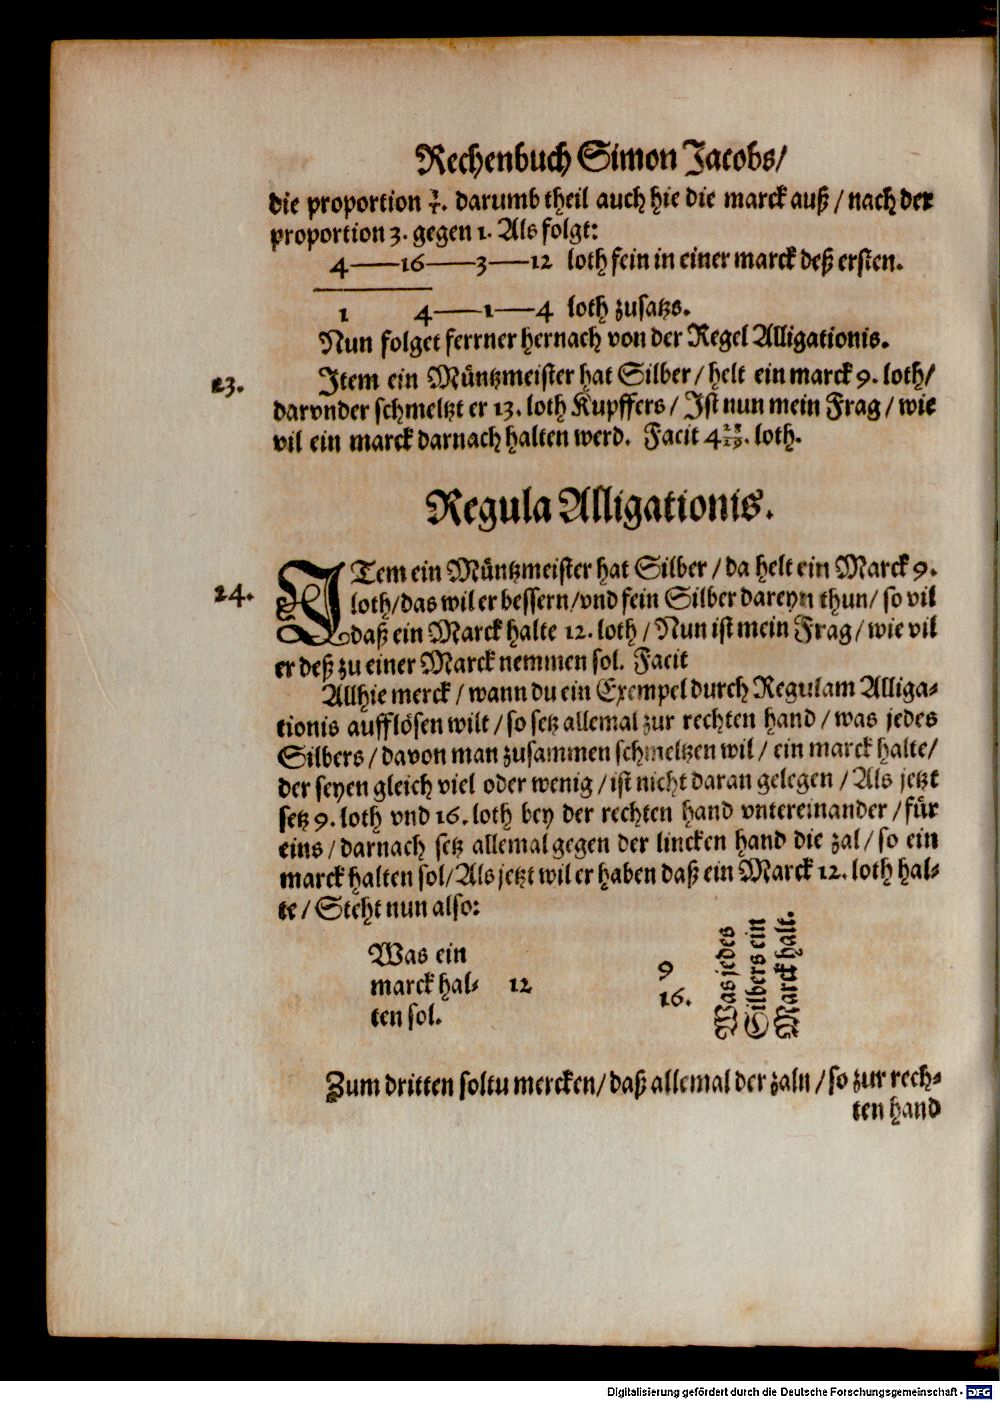 Rechenbuch Simon Jacobs/
die proportion 3/1. darumb theil auch hie die marck auß / nach der
proportion 3. gegen 1. Als folgt:
4——16——3——12 loth fein in einer marck deß ersten.
1 4——1——4 loth zusatzs.
Nun folget ferrner hernach von der Regel Alligationis.
23. Item ein Müntzmeister hat Silber / helt ein marck 9. loth/
darvnder schmeltzt er 13. loth Kupffers / Ist nun mein Frag / wie
vil ein marck darnach halten werd. Facit 4 28/29. loth.
Regula Alligationis.
24. ITem ein Müntzmeister hat Silber / da helt ein Marck 9.
loth/das wil er bessern/vnd fein Silber dareyn thun/ so vil
daß ein Marck halte 12. loth / Nun ist mein Frag / wie vil
er deß zu einer Marck nemmen sol. Facit
Allhie merck / wann du ein Exempel durch Regulam Alliga-
tionis aufflösen wilt / so setz allemal zur rechten hand / was jedes
Silbers / davon man zusammen schmeltzen wil / ein marck halte/
der seyen gleich viel oder wenig / ist nicht daran gelegen / Als jetzt
setz 9. loth vnd 16. loth bey der rechten hand vntereinander / für
eins / darnach setz allemal gegen der lincken hand die zal / so ein
marck halten sol/Als jetzt wil er haben daß ein Marck 12. loth hal-
te / Steht nun also:
Was ein
marck hal- 12
ten sol.
9
16.
Was jedes
Silbers ein
Marck halt.
Zum dritten soltu mercken/ daß allemal der zaln / so zur rech-
ten hand
Digitalisierung gefördert durch die Deutsche Forschungsgemeinschaft - DFG